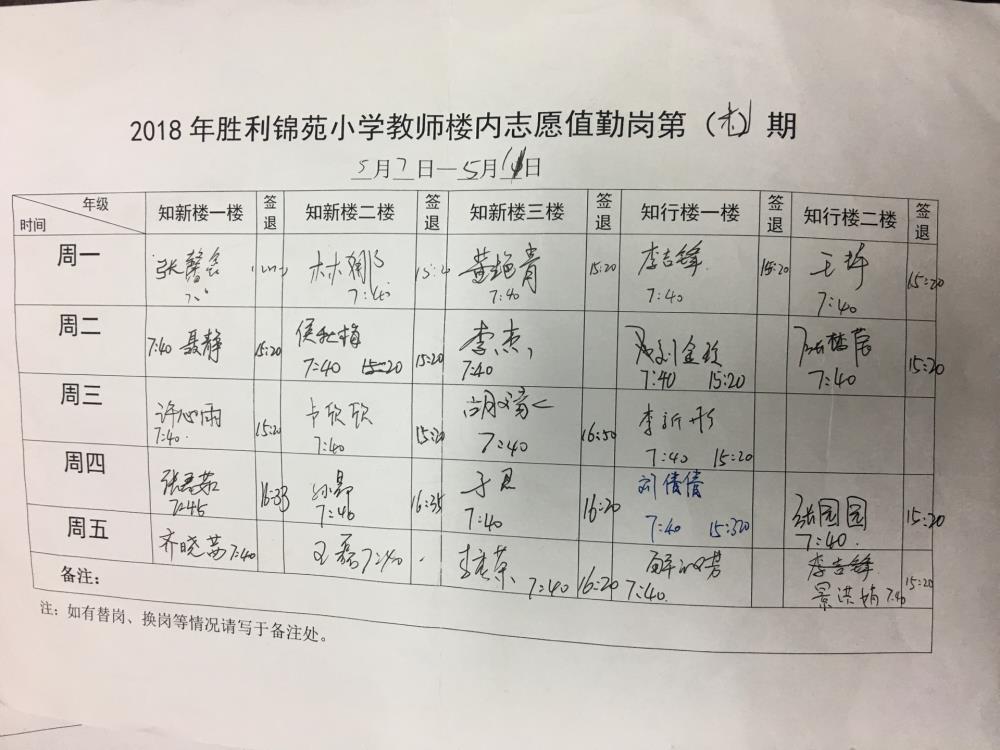 2018年胜利锦苑小学教师楼内志愿值勤岗第（）期
5月7日—5月11日
年级 时间 知新楼一楼 签退 知新楼二楼 签退 知新楼三楼 签退 知行楼一楼 签退 知行楼二楼 签退
周一 张馨 林 黄艳青 7:40 15:20 李吉锋 7:40 15:20 王 7:40 15:20
周二 7:40 聂静 15:20 侯秋梅 7:40 15:20 15:20 李杰 7:40 刘金玲 7:40 15:20 7:40 15:20
周三 许心雨 7:40 15:20 卞欣欣 7:40 15:20 胡 7:40 16:50 李新彤 7:40 15:20
周四 7:45 16:33 孙 7:40 16:35 于思 7:40 16:20 刘倩倩 7:40 15:20 张园园 7:40 15:20
周五 齐晓 7:40 王磊 7:40 7:40 16:20 7:40 李吉锋 景洪娟 7:40 15:20
备注：
注：如有替岗、换岗等情况请写于备注处。